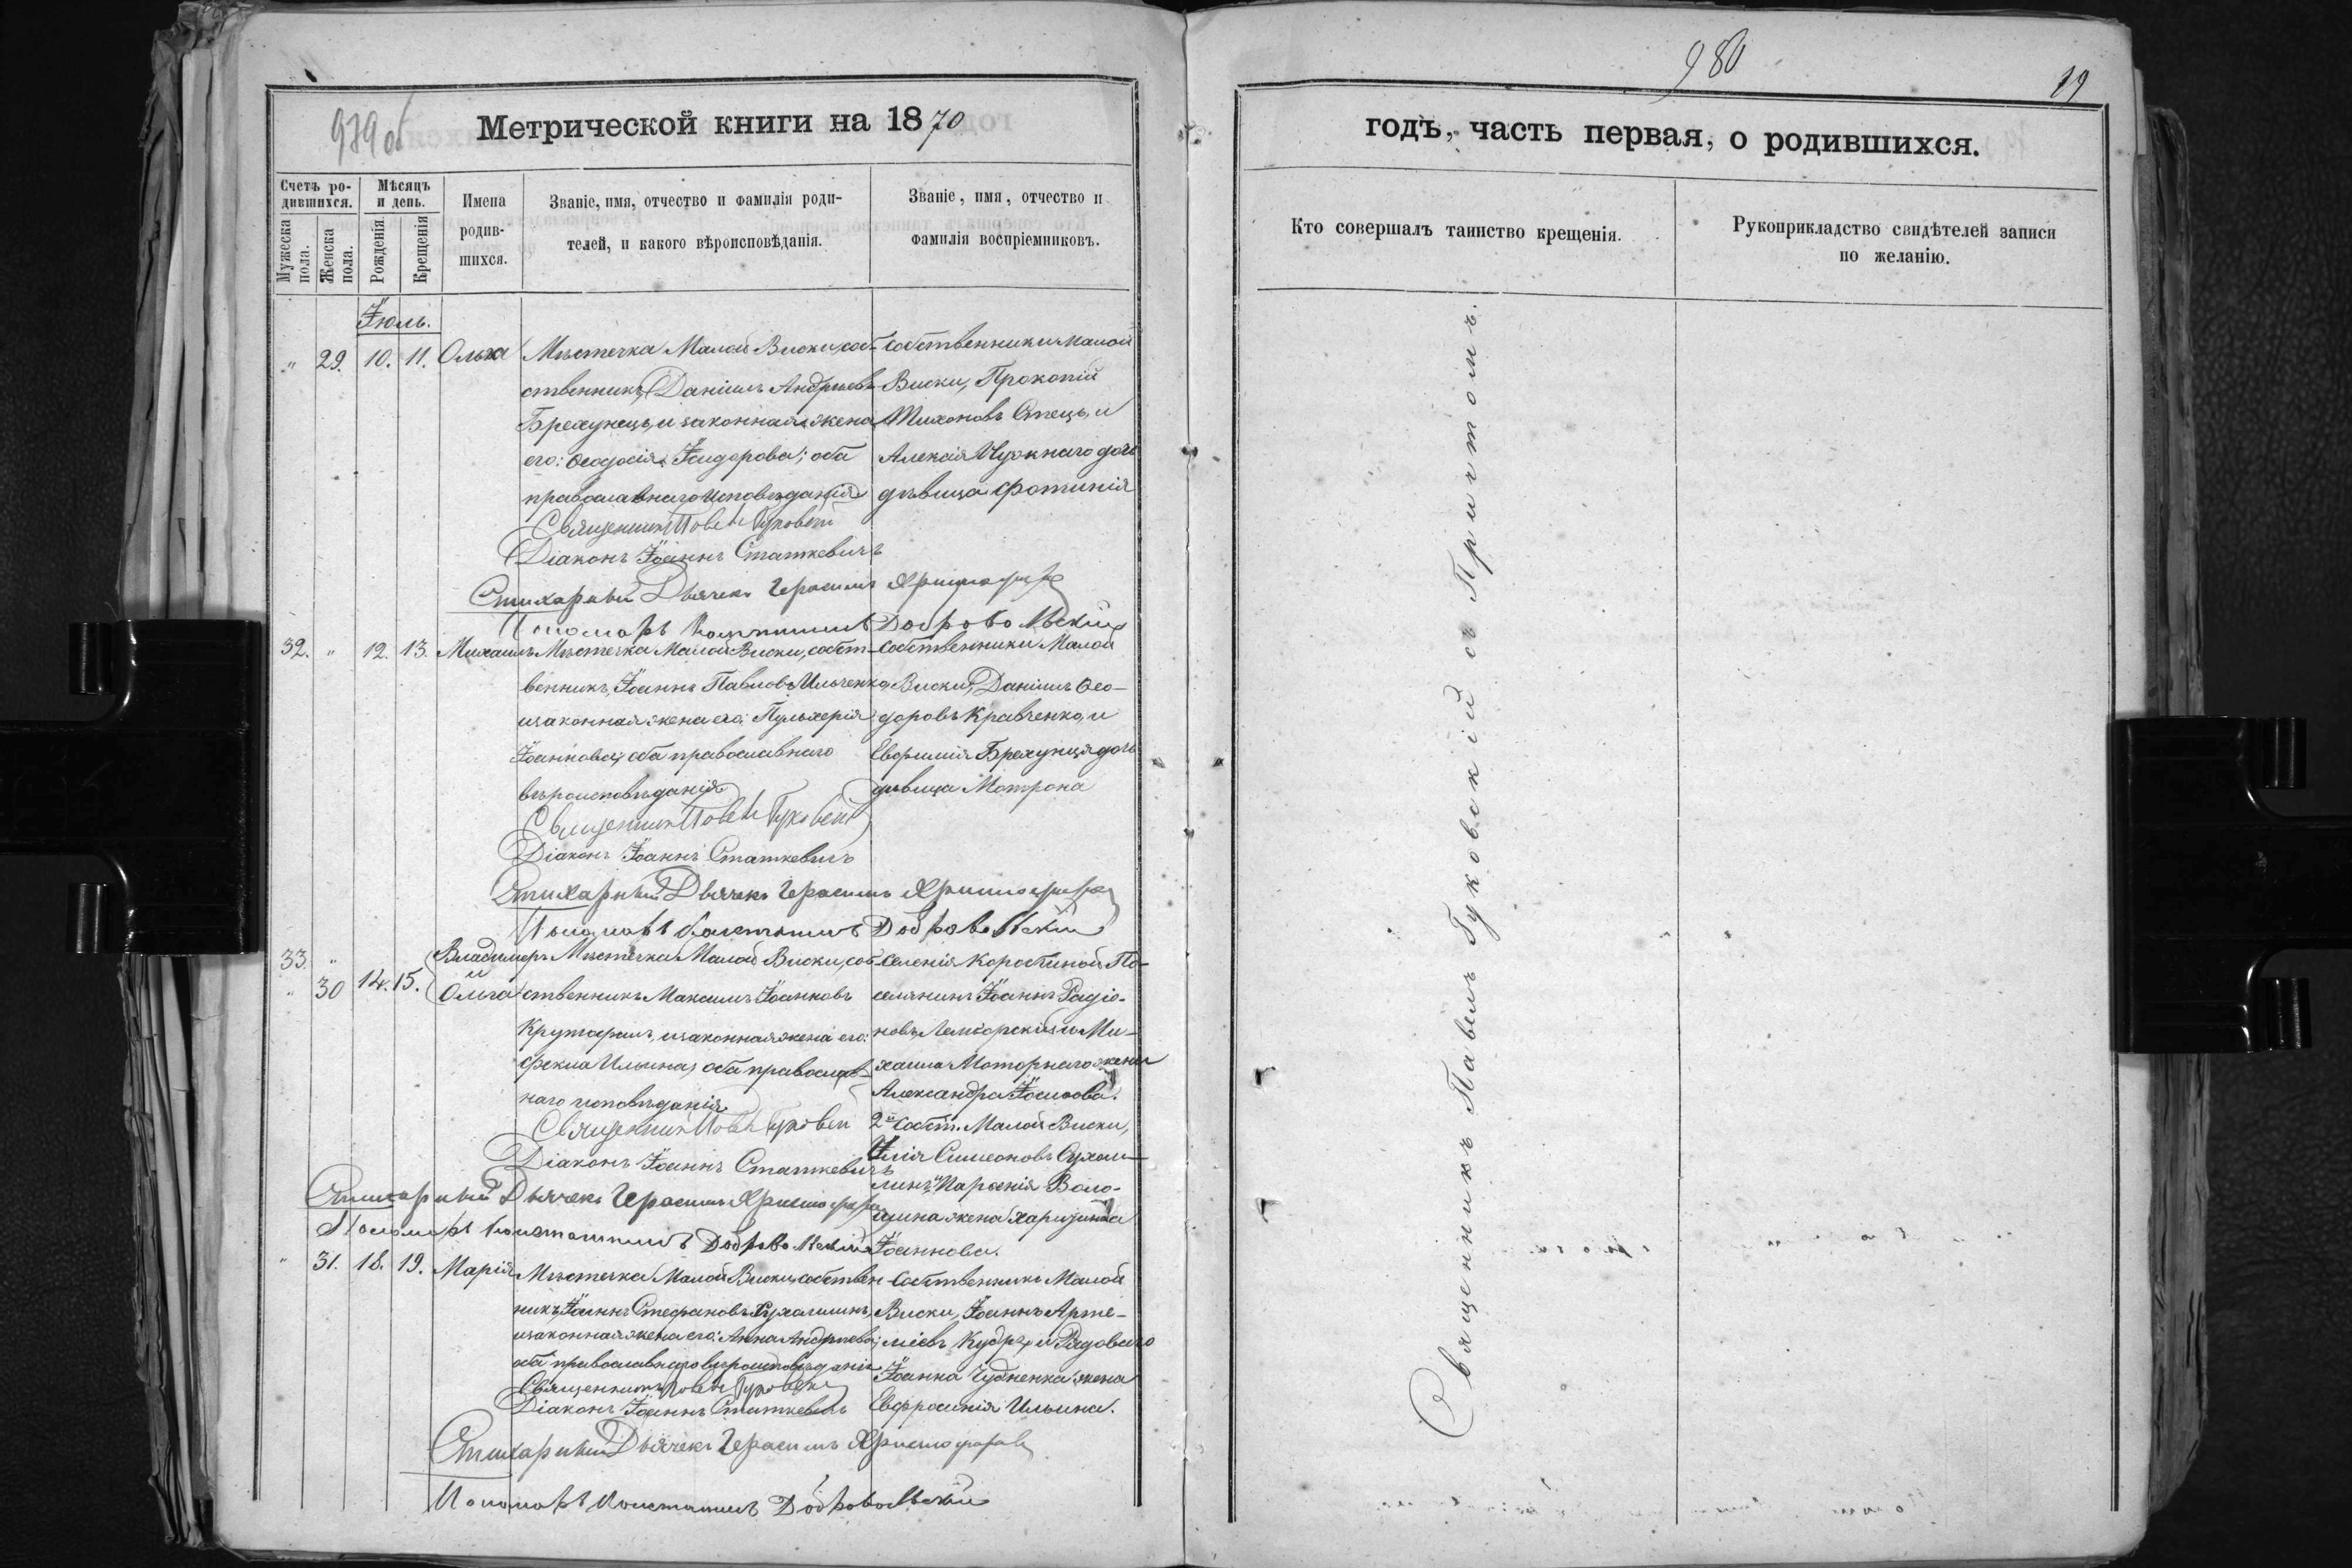 979 об
Метрической книги на 1870
Счетъ ро-
дившихся.
Мужеска
пола.
Женска
пола.
Мѣсяцъ
и день.
Рожденія.
Крещенія
Имена
родив-
шихся.
Званіе, имя, отчество и фамилія роди-
телей, и какого вѣроисповѣданія.
Званіе, имя, отчество и
фамилія воспріемниковъ.
Іюль.
" 29. 10. 11. Ольга
Мѣстечка Малой Виски, соб-
ственникъ, Даніилъ Андреевъ
Брехунецъ, и законная жена
его: Ѳеодосія Ісидорова; оба
православнаго исповѣданія
Собственники Малой
Виски, Прокопій
Тихоновъ и
Алексія дочь
дѣвица Фотинія
Священникъ Павелъ Гуковскій
Діаконъ Іоаннъ Статкевичъ
Стихарный Дьячекъ Герасимъ Христофоровъ
Пономарь Константинъ Добровольскій
32. " 12. 13. Михаилъ
Мѣстечка Малой Виски, собст-
венникъ, Іоаннъ Павловъ Ильченко,
и законная жена его: Пульхерія
Іоаннова; оба православнаго
вѣроисповѣданія
Собственники Малой
Виски, Даніилъ Ѳео-
доровъ Кравченко, и
Евфимія Брехунця дочь
дѣвица Мотрона
Священникъ Павелъ Гуковскій
Діаконъ Іоаннъ Статкевичъ
Стихарный Дьячекъ Герасимъ Христофоровъ
Пономарь Константинъ Добровольскій
33. "
" 30 14. 15.
Владимиръ
и
Ольга
Мѣстечка Малой Виски, соб-
ственникъ Максимъ Іоанновъ
и законная жена его:
Ѳекла Ильина, оба православ-
наго исповѣданія
Селенія Коробчиной По-
селянинъ Іоаннъ Радіо-
новъ и Ми-
хаила Моторнаго жена
Александра Іосифова.
2й Собст. Малой Виски,
Илія Симеоновъ Сухом-
линъ, и Парѳенія Воло-
шина жена Харитина
Іоаннова.
Священникъ Павелъ Гуковскій
Діаконъ Іоаннъ Статкевичъ
Стихарный Дьячекъ Герасимъ Христофоровъ
Пономарь Константинъ Добровольскій
" 31. 18. 19. Марія
Мѣстечка Малой Виски, собствен-
никъ, Іоаннъ Стефановъ
и законная жена его: Анна Андреева;
оба православнаго вѣроисповѣданія
Собственникъ Малой
Виски, Іоаннъ Арте-
міевъ Кудря, и Рядоваго
Іоанна жена
Евфросинія Ильина.
Священникъ Павелъ Гуковскій
Діаконъ Іоаннъ Статкевичъ
Стихарный Дьячекъ Герасимъ Христофоровъ
Пономарь Константинъ Добровольскій
980
19
годъ, часть первая, о родившихся.
Кто совершалъ таинство крещенія.
Рукоприкладство свидѣтелей записи
по желанію.
Священникъ Павелъ Гуковскій съ Причтомъ.